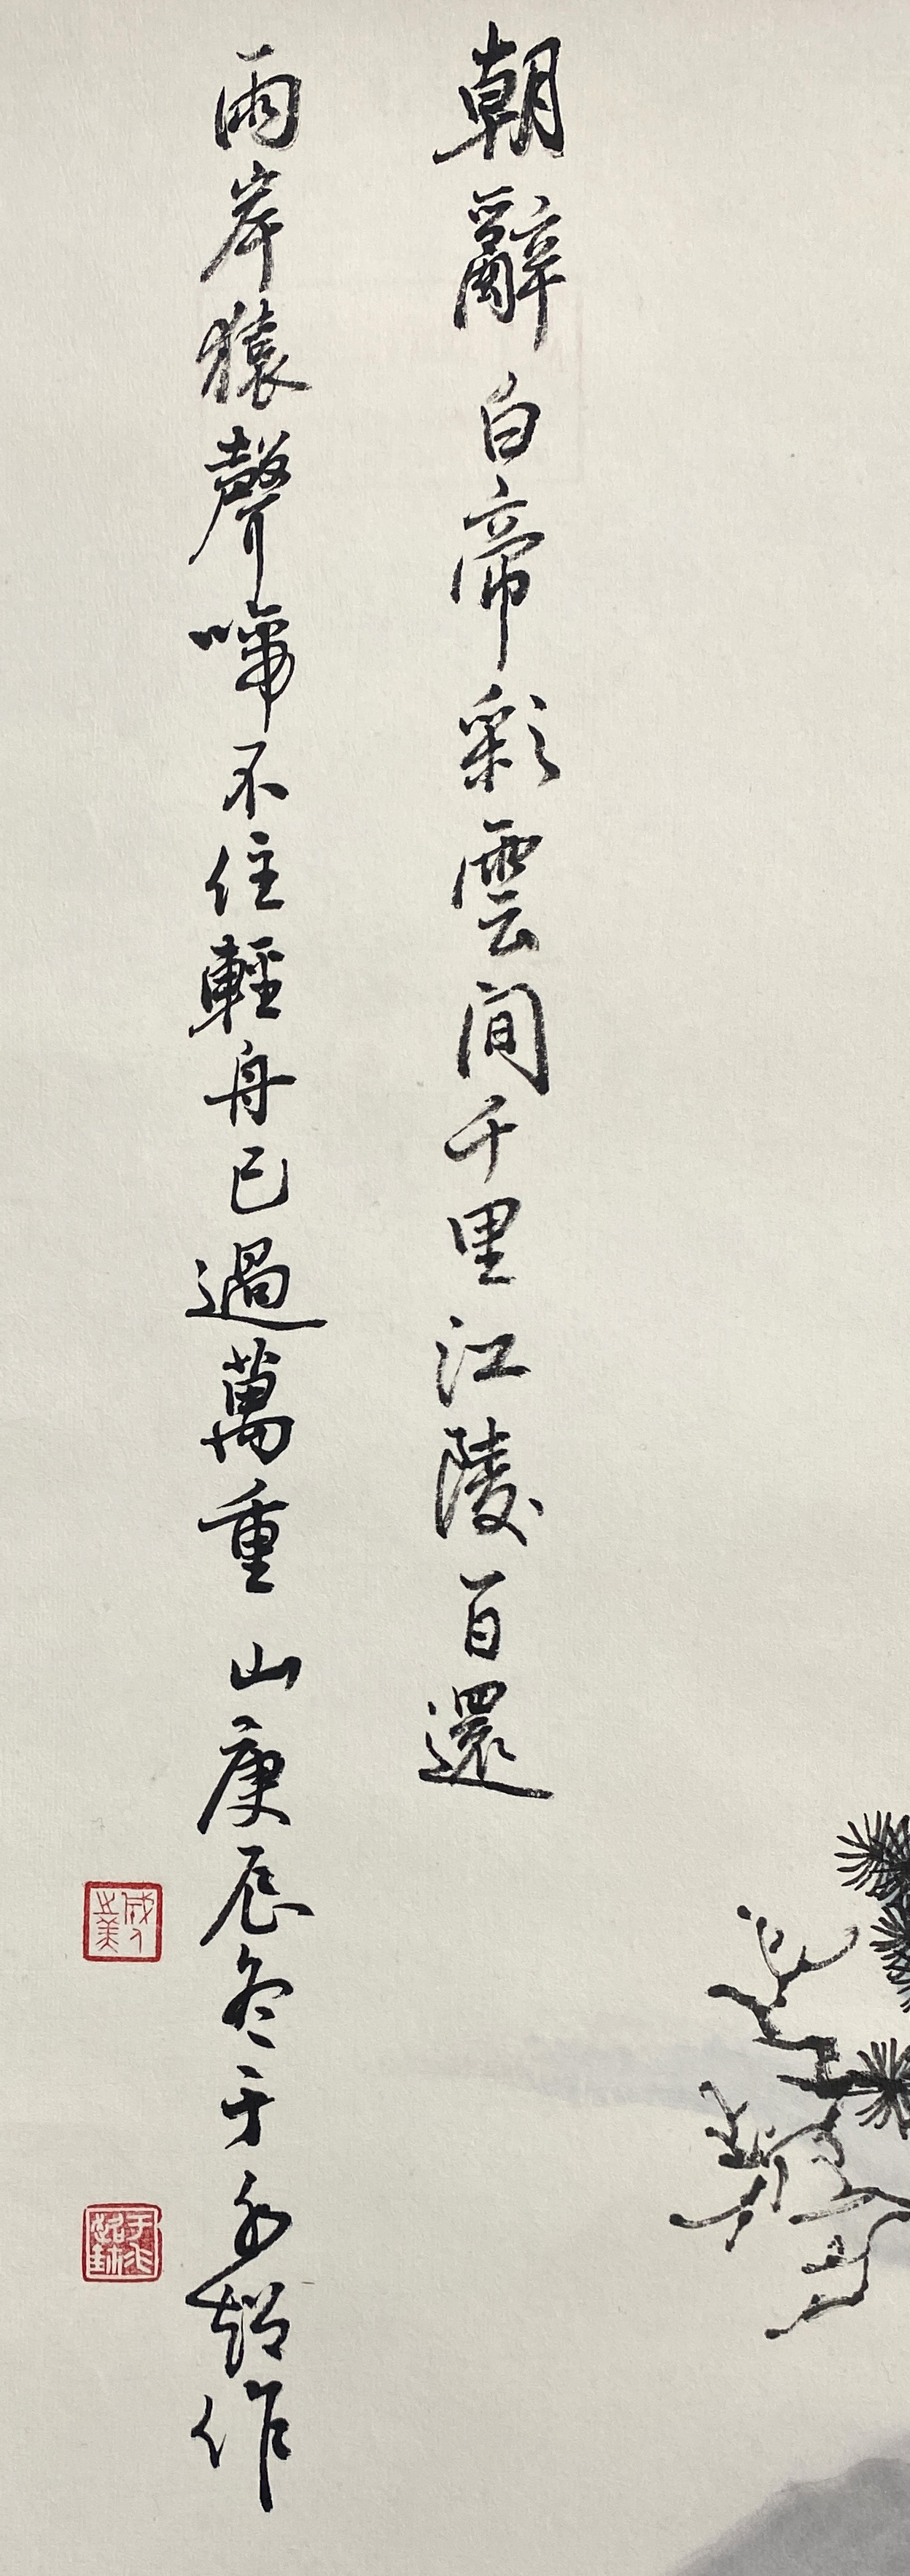 朝辭白帝彩雲間千里江陵一日還
兩岸猿聲啼不住輕舟已過萬重山庚辰冬于作
成人之美